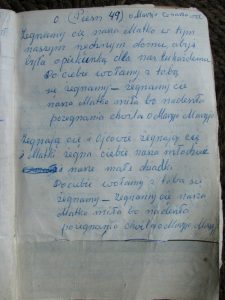 0 (Pieśń 49) o Maryjo
Żegnamy cię nasza Matko w tym
naszym rodzinnym domu abyś
była opiekunką dla nas tu każdemu
Do ciebie wołamy z tobą
się żegnamy – żegnamy cię
nasza Matko miła bo nadeszła
pożegnania chwila o Maryjo Maryjo
Żegnają cię i Ojcowie żegnają cię
i Matki żegna ciebie nasza młodzież
i nasze małe dziatki
Do ciebie wołamy z tobą się
żegnamy – żegnamy cię nasza
Matko miła bo nadeszła
pożegnania chwila o Maryjo Maryjo